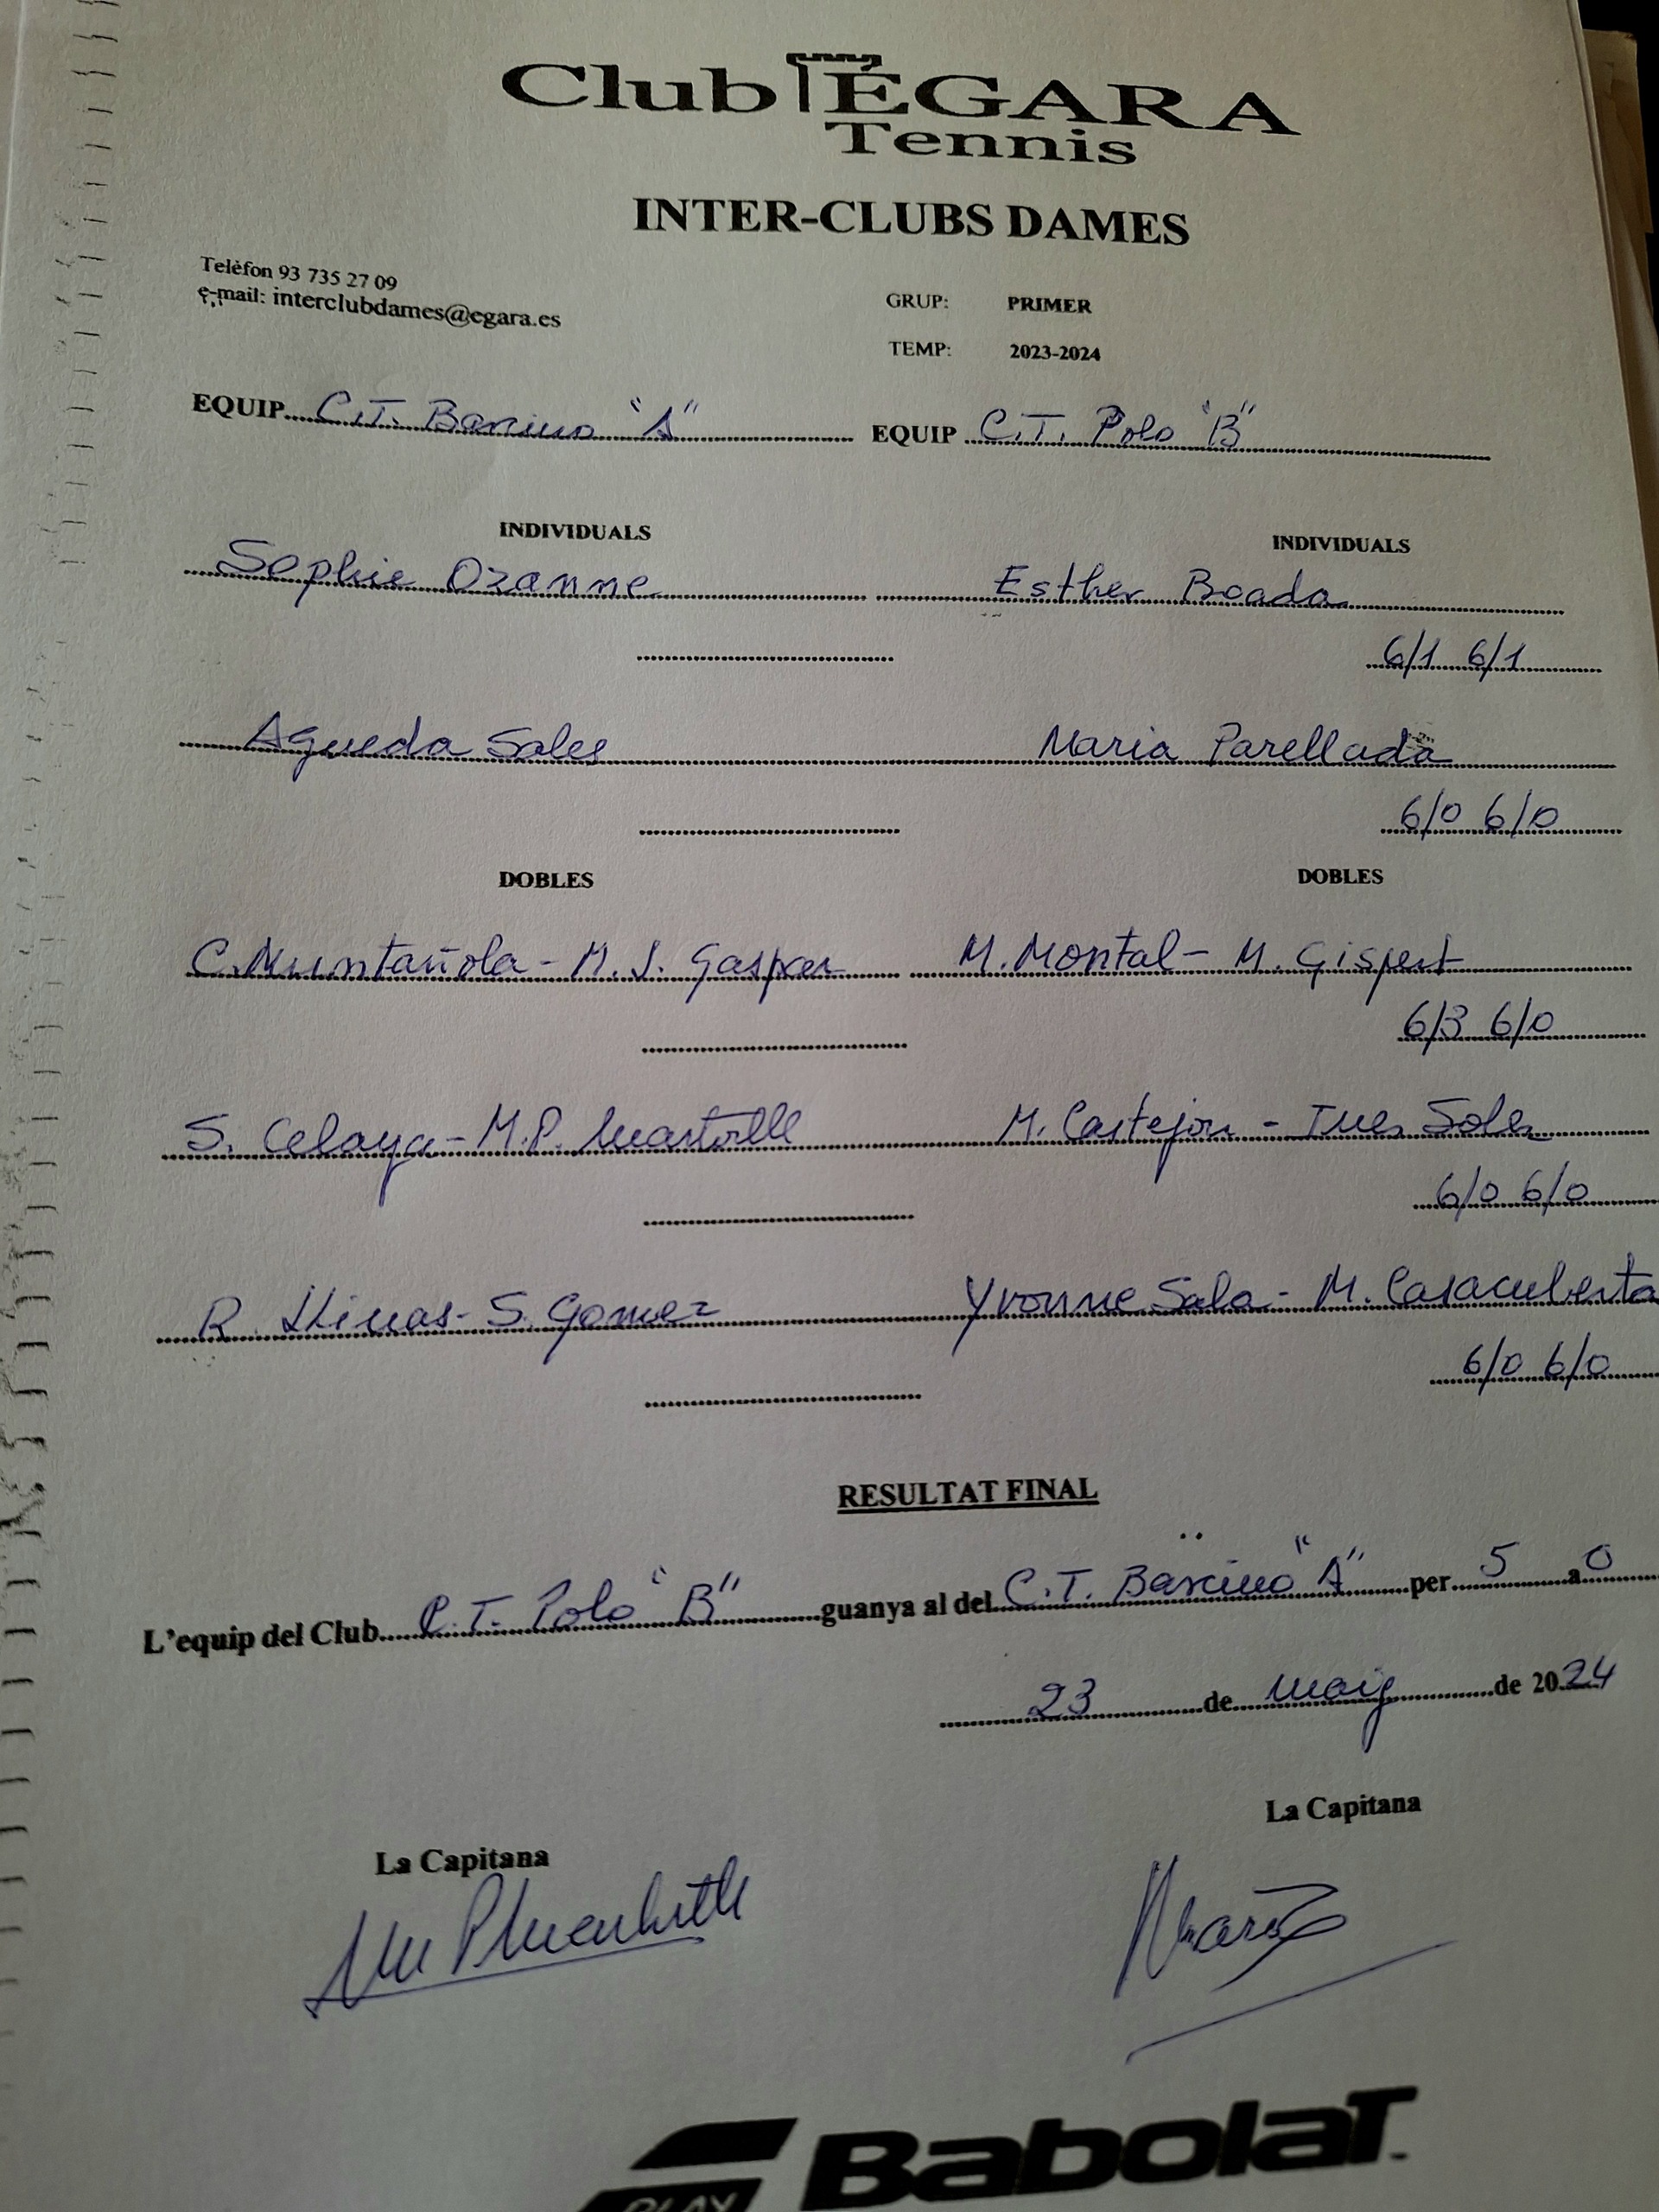 Club ÉGARA
Tennis
INTER-CLUBS DAMES
Telèfon 93 735 27 09
e-mail: interclubdames@egara.es
GRUP: PRIMER
TEMP: 2023-2024
EQUIP C.T. Barcino "A" EQUIP C.T. Polo "B"
INDIVIDUALS INDIVIDUALS
Sophie Ozanne Esther Boada
6/1 6/1
Agueda Sales Maria Parellada
6/0 6/0
DOBLES DOBLES
C. Muntañola - M. J. Gaspar M. Montal - M. Gispert
6/3 6/0
S. Celaya - M.P. M. Castejon - Ines Soler
6/0 6/0
R. Llinas - S. Gomez Yvonne Sala - M. Casacuberta
6/0 6/0
RESULTAT FINAL
L'equip del Club C.T. Polo "B" guanya al del C.T. Barcino "A" per 5 a 0
23 de Maig de 2024
La Capitana
La Capitana
Babolat
PLAY